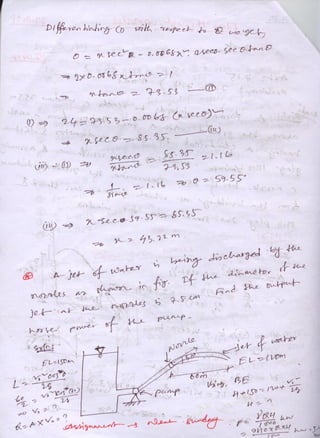 Differentiating (i) with respect to θ we get,
0 = x sec²θ - 0.0068x². 2secθ. secθ tanθ
⇒ 2x0.0068 x tanθ = 1
⇒ x tanθ = 73.53 — (ii)
(i) ⇒ 24 = 73.53 - 0.0068 (x secθ)²
⇒ x secθ = 85.35 — (iii)
(iii) ÷ (ii) ⇒ x secθ / x tanθ = 85.35 / 73.53 = 1.16
⇒ 1 / sinθ = 1.16 ⇒ θ = 59.55°
(iii) ⇒ x sec 59.55° = 85.35
⇒ x = 43.22 m
A jet of water is being discharged by the
nozzles as shown in fig. If the diameter of the
jet at the nozzles is 7.5 cm Find the output
horse power of the pump.
Soln:
Nozzle
Jet of water
EL=150m
EL=210m
60m
Pump
Using, BE
H+150=
H = ?
Q=AXV₀ = ?
Assignment